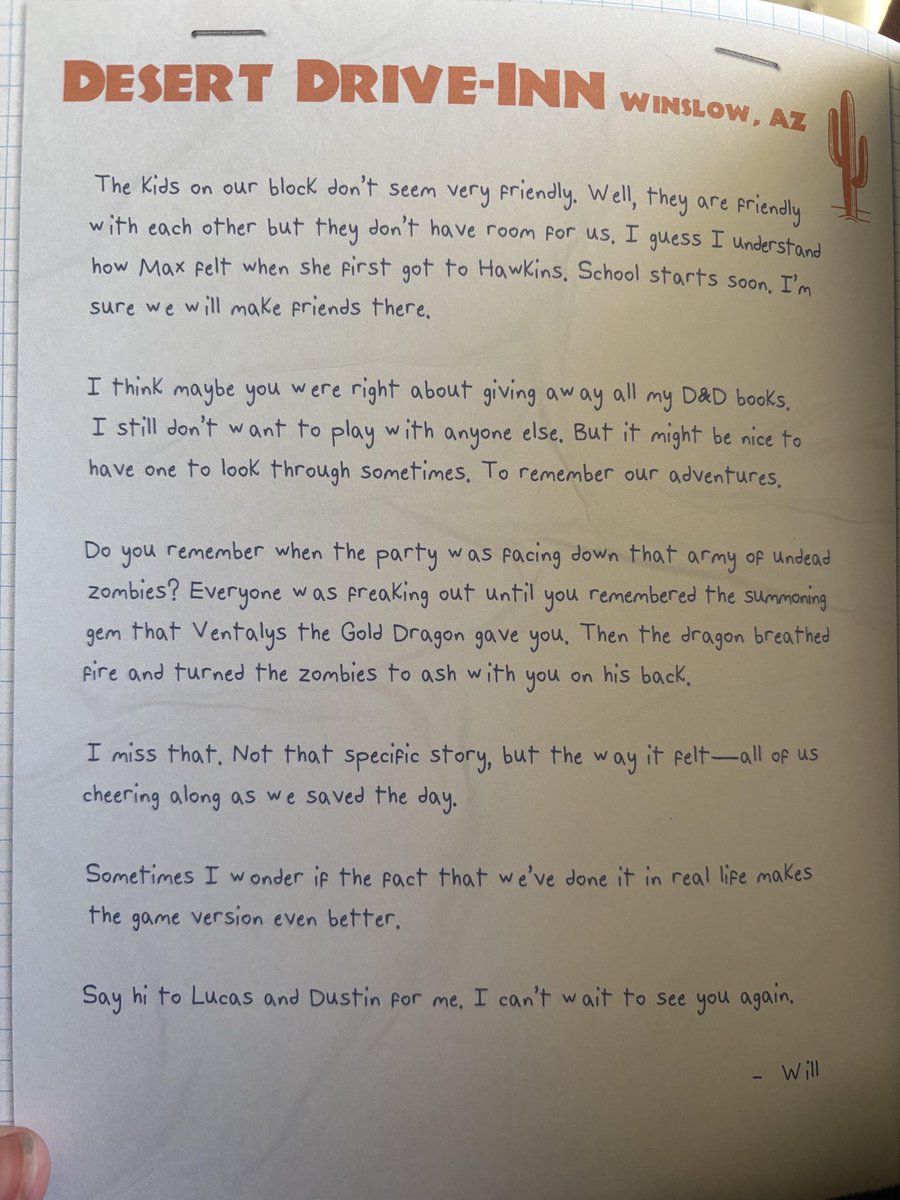 DESERT DRIVE-INN WINSLOW, AZ
The Kids on our block don't seem very friendly. Well, they are friendly
with each other but they don't have room for us. I guess I understand
how Max felt when she first got to Hawkins. School starts soon. I'm
sure we will make friends there.
I think maybe you were right about giving away all my D&D books.
I still don't want to play with anyone else. But it might be nice to
have one to look through sometimes. To remember our adventures.
Do you remember when the party was facing down that army of undead
zombies? Everyone was freaking out until you remembered the summoning
gem that Ventalys the Gold Dragon gave you. Then the dragon breathed
fire and turned the zombies to ash with you on his back.
I miss that. Not that specific story, but the way it felt—all of us
cheering along as we saved the day.
Sometimes I wonder if the fact that we've done it in real life makes
the game version even better.
Say hi to Lucas and Dustin for me. I can't wait to see you again.
- Will